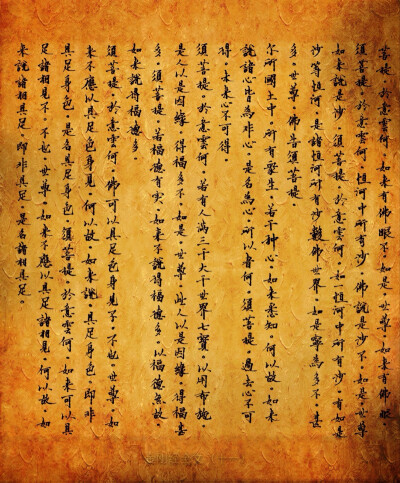 菩提。於意雲何。如來有佛眼不。如是。世尊。如來有佛眼。
須菩提。於意雲何。恒河中所有沙。佛說是沙不。如是。世尊
如來說是沙。須菩提。於意雲何。如一恒河中所有沙。有如是
沙等恒河。是諸恒河所有沙數佛世界。如是寧為多不。甚
多。世尊。佛告須菩提
尔所國土中。所有眾生。若干種心。如來悉知。何以故。如來
說諸心皆為非心。是名為心。所以者何。須菩提。過去心不可
得。未來心不可得。
須菩提。於意雲何。若有人滿三千大千世界七寶。以用布施
是人以是因緣。得福多不。如是。世尊。此人以是因緣。得福甚
多。須菩提。若福德有實。如來不說得福德多。以福德無故。
如來說得福德多。
須菩提。於意雲何。佛可以具足色身見不。不也。世尊。如
來不應以具足色身見。何以故。如來說具足色身。即非
具足色身。是名具足色身。須菩提。於意雲何。如來可以具
足諸相見不。不也。世尊。如來不應以具足諸相見。何以故。如
來說諸相具足。即非具足。是名諸相具足。